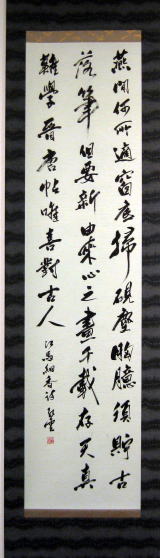 燕間何所適窗底掃硯塵胸臆須貯古
落筆但要新由來心之畫千載存天真
雖學晉唐帖唯喜對古人 江馬細香詩